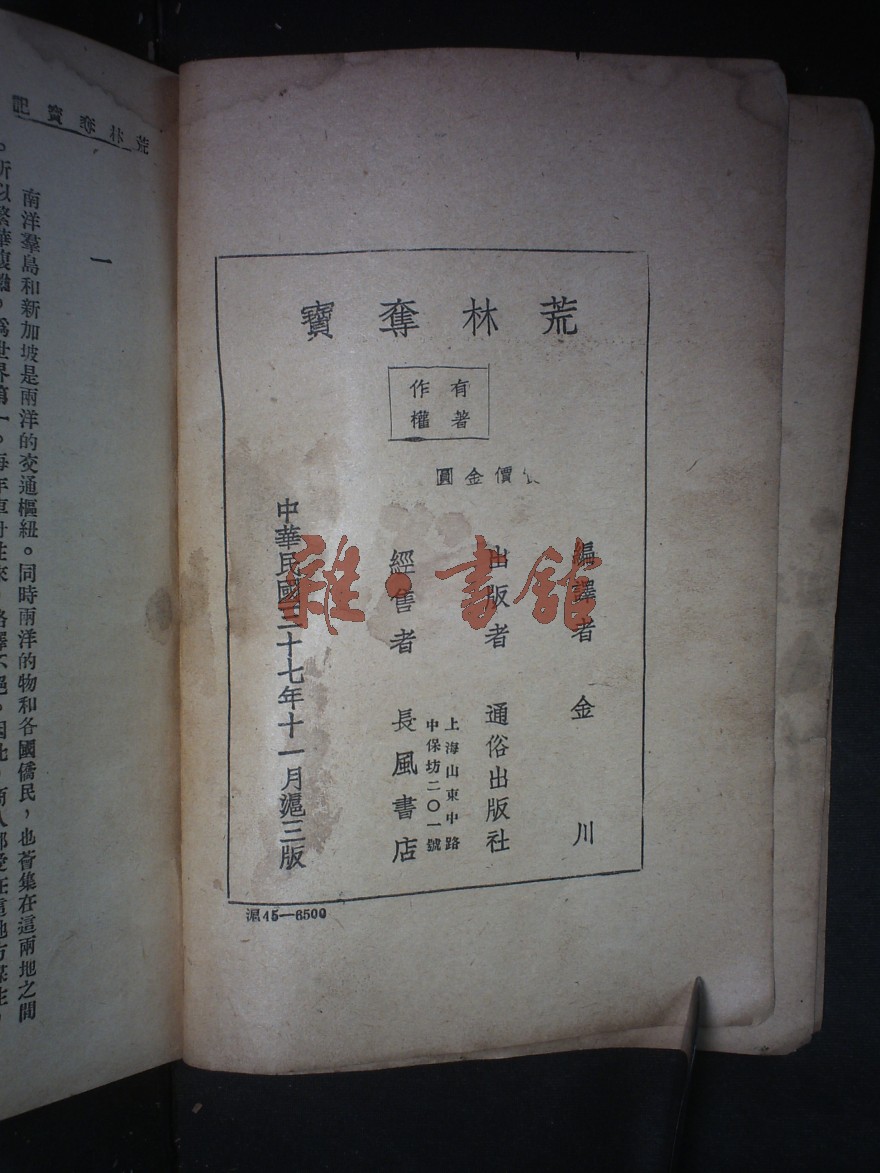 荒林奪寶
有著
作權
價金圓
編譯者 金川
出版者 通俗出版社
上海山東中路
中保坊二〇一號
經售者 長風書店
中華民國三十七年十一月滬三版
滬45—6500
雜·書館
荒林奪寶記
一
南洋羣島和新加坡是兩洋的交通樞紐。同時兩洋的物和各國僑民，也薈集在這兩地之間
。所以繁華馥麗，為世界第一。每年車舟往來，絡繹不絕。因此，商人都愛在這地方謀生，